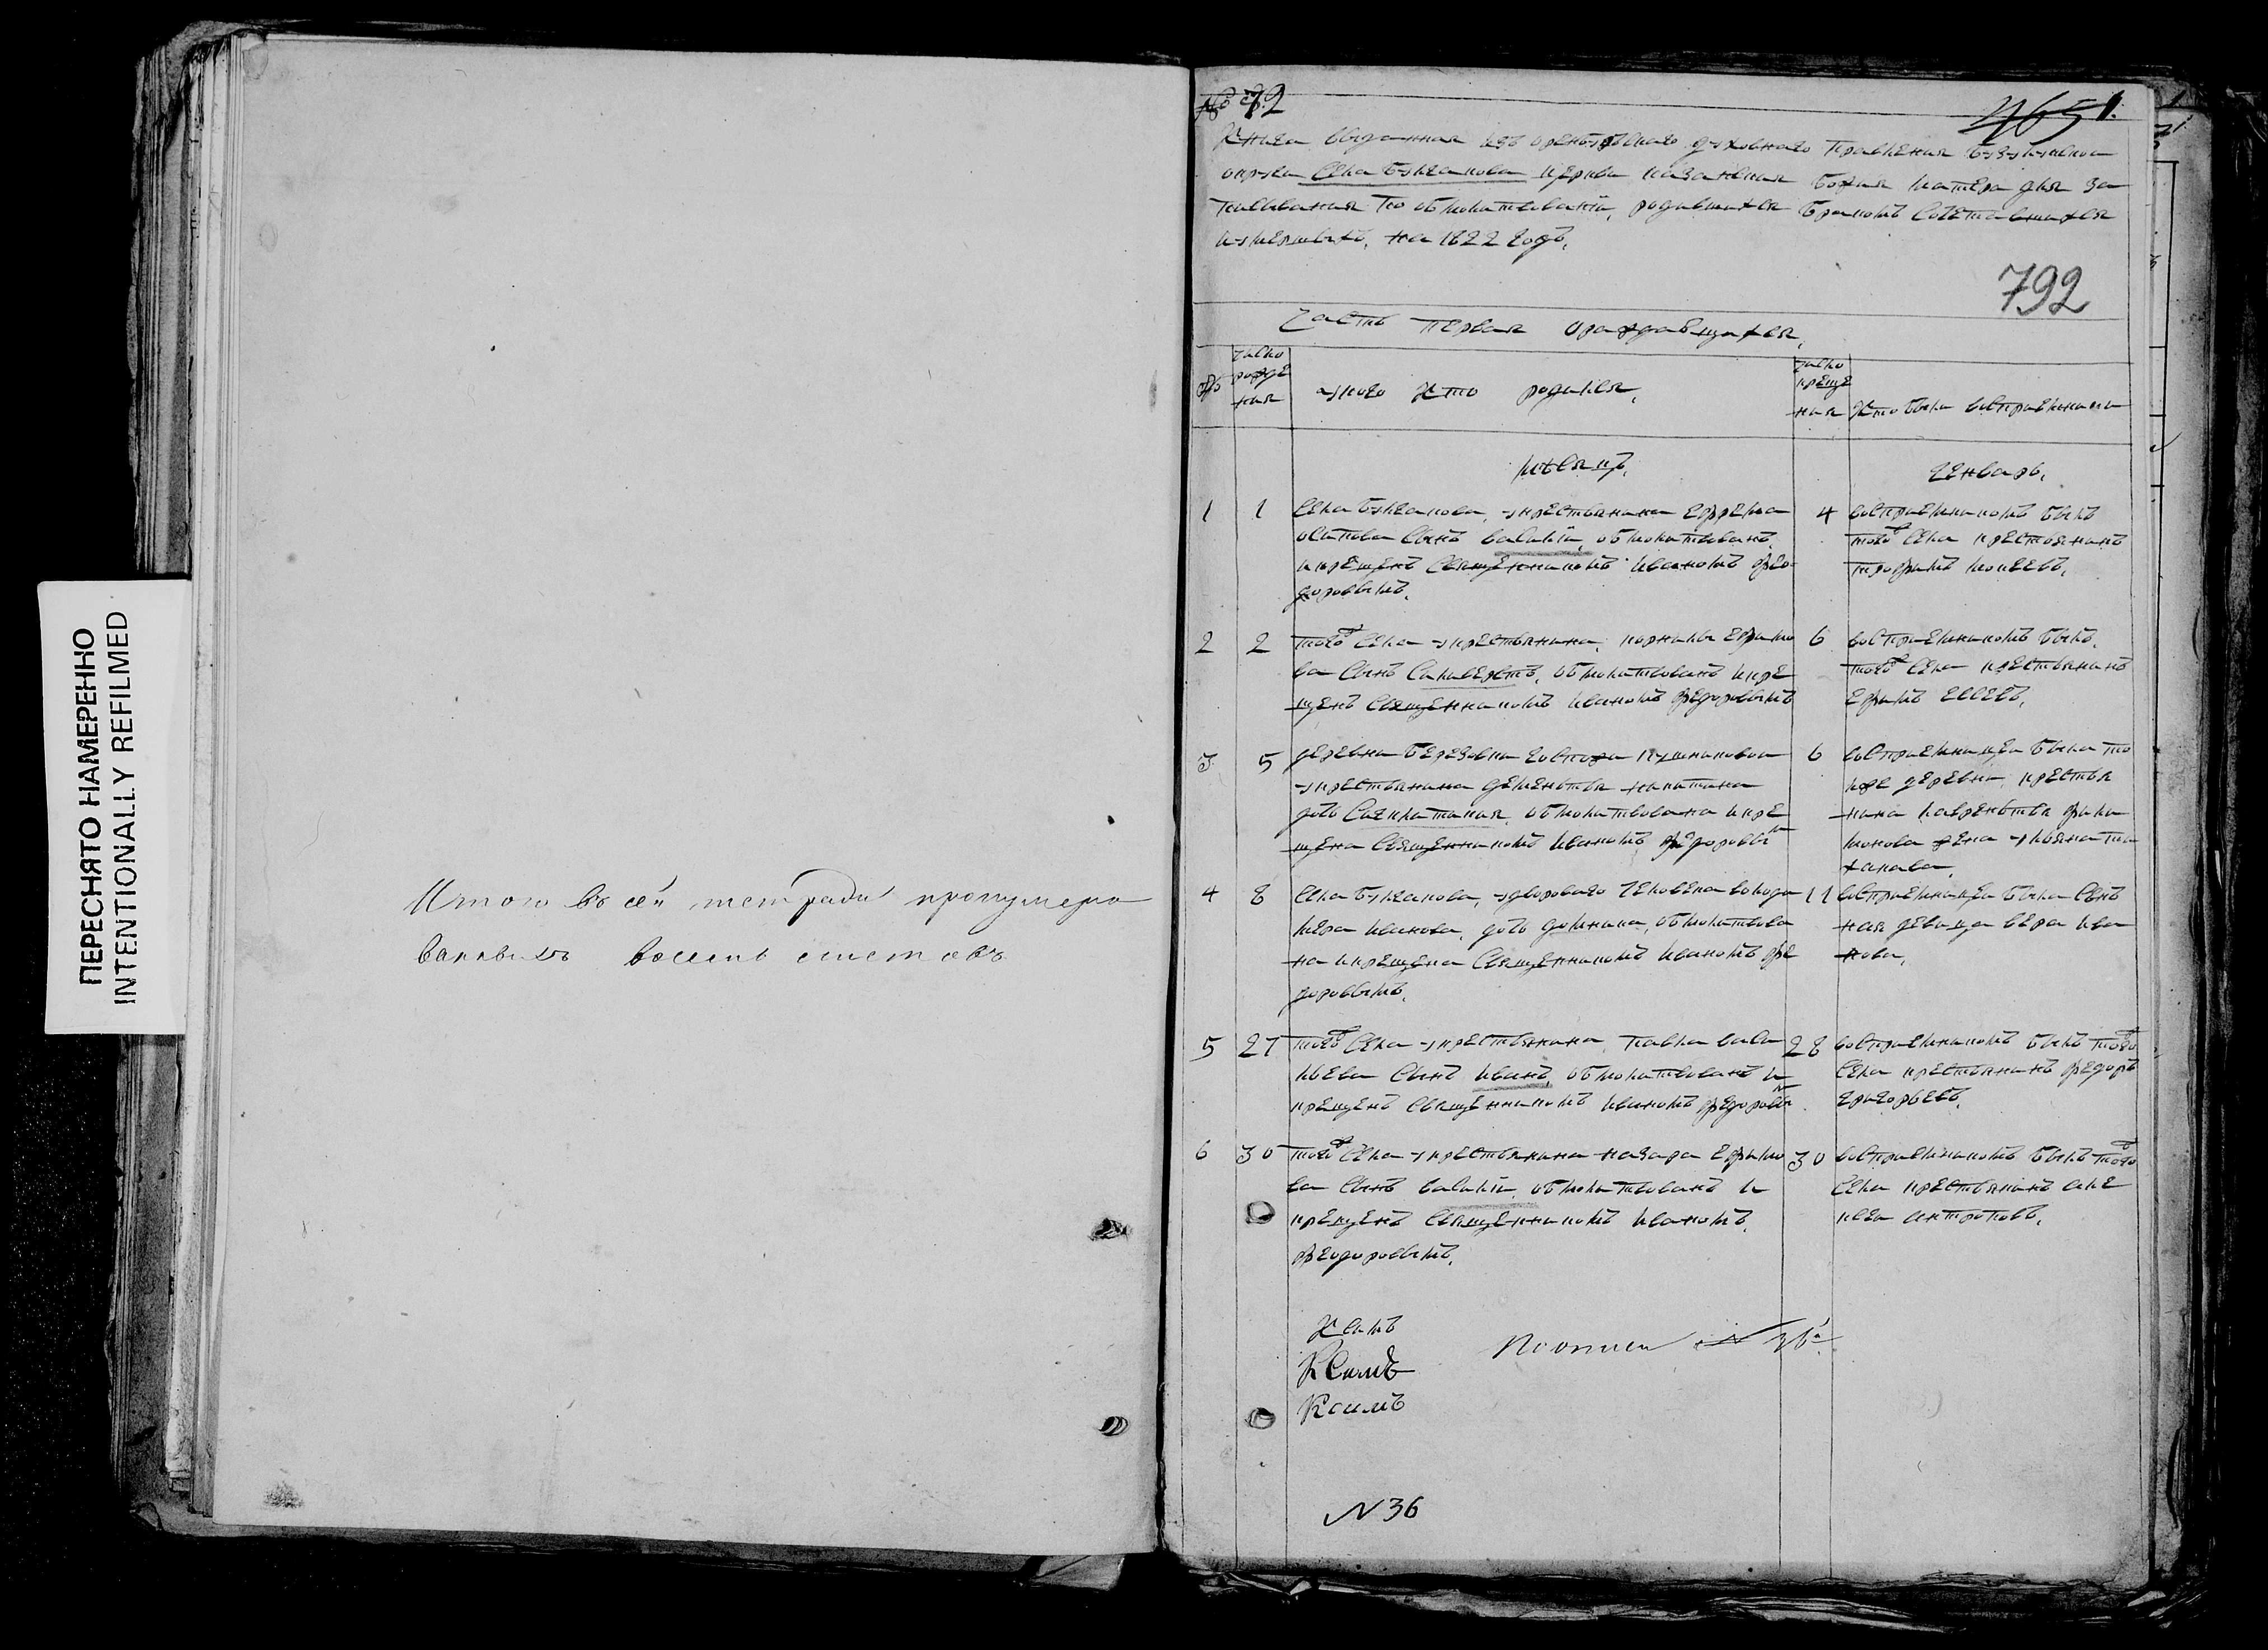 ПЕРЕСНЯТО НАМЕРЕННО
INTENTIONALLY REFILMED
Итого въ сей тетради пронумеро
ванныхъ восемь листовъ
№ 72
465 1.
Книга выданная изъ оренбурскаго духовнаго правления бузулускои
округи села булгакова церкви казанския божия матери для за
писывания по обмолитвовании, родившихся бракомъ сочетавшихся
и умершихъ, на 1822 годъ,
792
Часть первая о раждавшихся,
число
рожде
ния
у кого кто родился,
число
креще
ния
кто были восприемники
месяцъ,
генварь,
1 1 села булгакова, у крестьянина ефрема
осипова сынъ василий, обмолитвованъ
и крещенъ священникомъ иваномъ фео
доровымъ,
4 восприемникомъ былъ
тогожъ села крестьянинъ
трофимъ
2 2 тогожъ села у крестьянина, корнилы ефимо
ва сынъ силивёстъ, обмолитвованъ и кре
щенъ священникомъ иваномъ федоровымъ
6 восприемникомъ былъ,
тогожъ села крестьянинъ
ефимъ евсеевъ,
3 5 деревни березовки госпожи
у крестьянина дементья никитина
дочь обмолитвована и кре
щена священникомъ иваномъ федоровы
6 восприемница была то
йже деревни крестья
нина лаврентья фили
монова жена ульяна
4 8 села булгакова, у дворового человека володи
мера иванова, дочь домника, обмолитвова
на и крещена священникомъ иваномъ фе
доровымъ,
11 восприемница была
ная девица вера ива
нова,
5 27 тогожъ села у крестьянина, павла васи
льева сынъ иванъ, обмолитвованъ и
крещенъ священникомъ иваномъ федоровы
28 восприемникомъ былъ тогожъ
села крестьянинъ федоръ
григорьевъ,
6 30 тогожъ села у крестьянина назара ефимо
ва сынъ василий, обмолитвованъ и
крещенъ священникомъ иваномъ,
феодоровымъ,
30 восприемникомъ былъ тогожъ
села крестьянинъ але
ксеи антроповъ,
К симъ
К симъ
К симъ
N 36